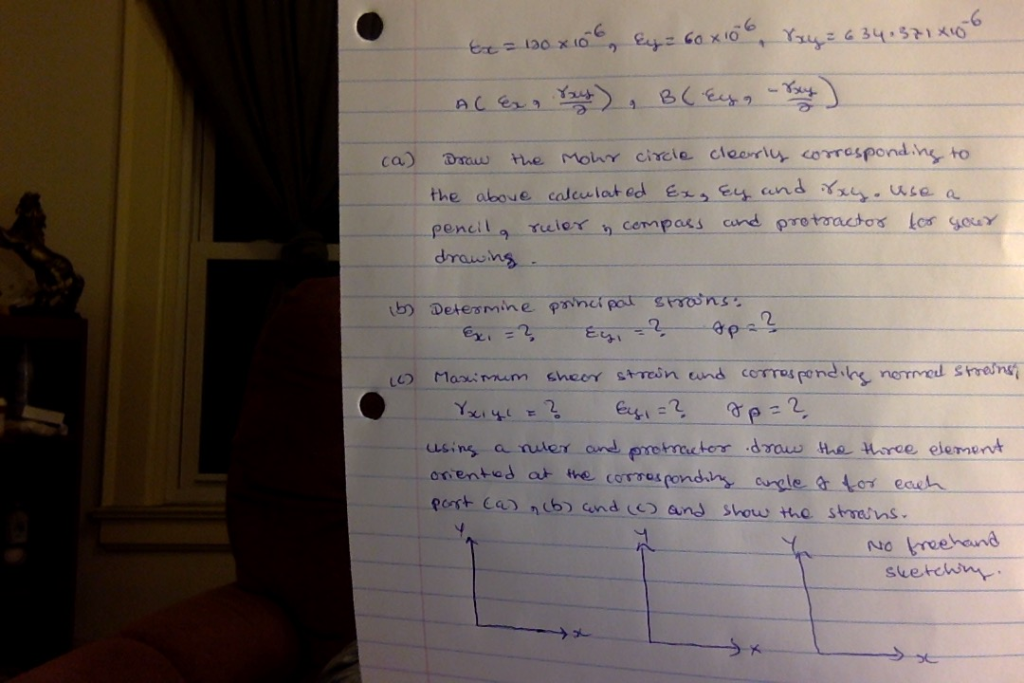 εx = 120 × 10⁻⁶, εy = 60 × 10⁻⁶, γxy = 634.371 × 10⁻⁶
A( εx, γxy/2 ), B( εy, -γxy/2 )
(a) Draw the Mohr circle clearly corresponding to
the above calculated εx, εy and γxy. Use a
pencil, ruler, compass and protractor for your
drawing.
(b) Determine principal strains:
εx₁ = ? εy₁ = ? θp = ?
(c) Maximum shear strain and corresponding normal strains,
γx₁y₁ = ? εy₁ = ? θp = ?
using a ruler and protractor draw the three element
oriented at the corresponding angle θ for each
part (a), (b) and (c) and show the strains.
Y Y Y No freehand
sketching.
x x x